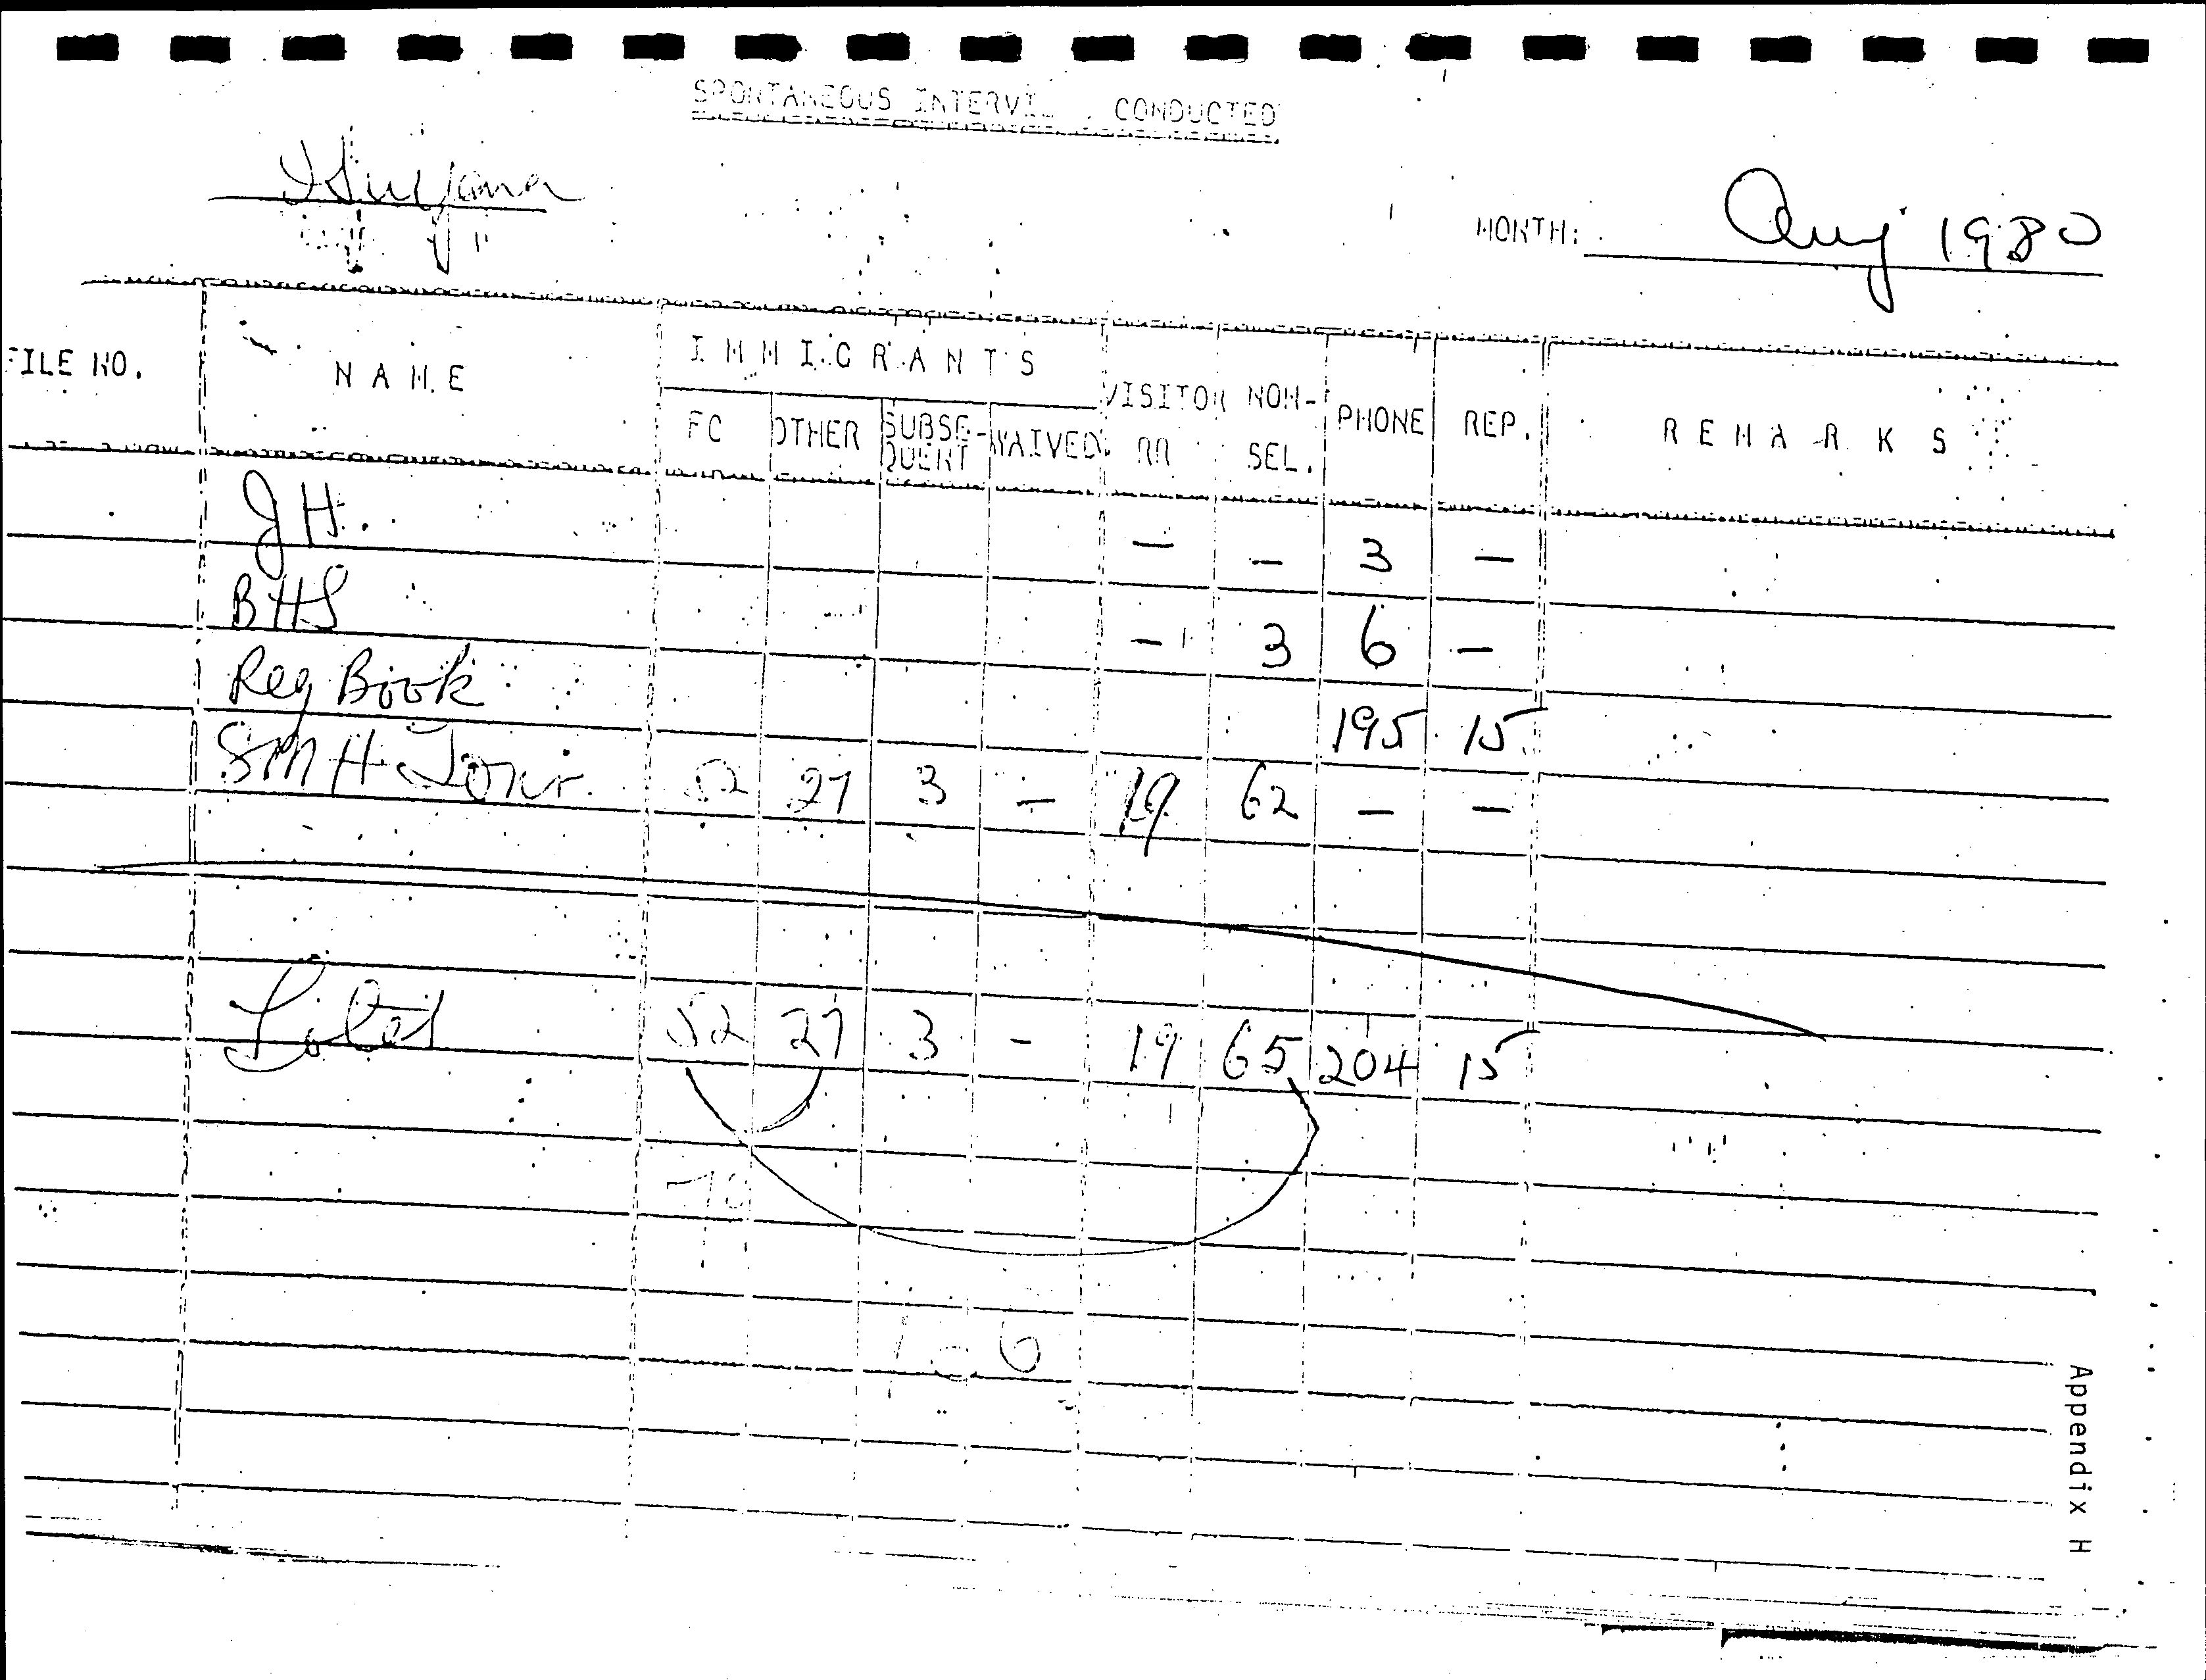 SPONTANEOUS INTERVI CONDUCTED
MONTH: Aug 1980
FILE NO. NAME IMMIGRANTS VISITOR NON- PHONE REP. REMARKS
FC OTHER SUBSE-QUENT WAIVED RR SEL.
JH. — — 3 —
BHS — 3 6 —
Reg Book 195 15
SMH 52 27 3 — 19 62 — —
52 27 3 — 19 65 204 15
79
Appendix H